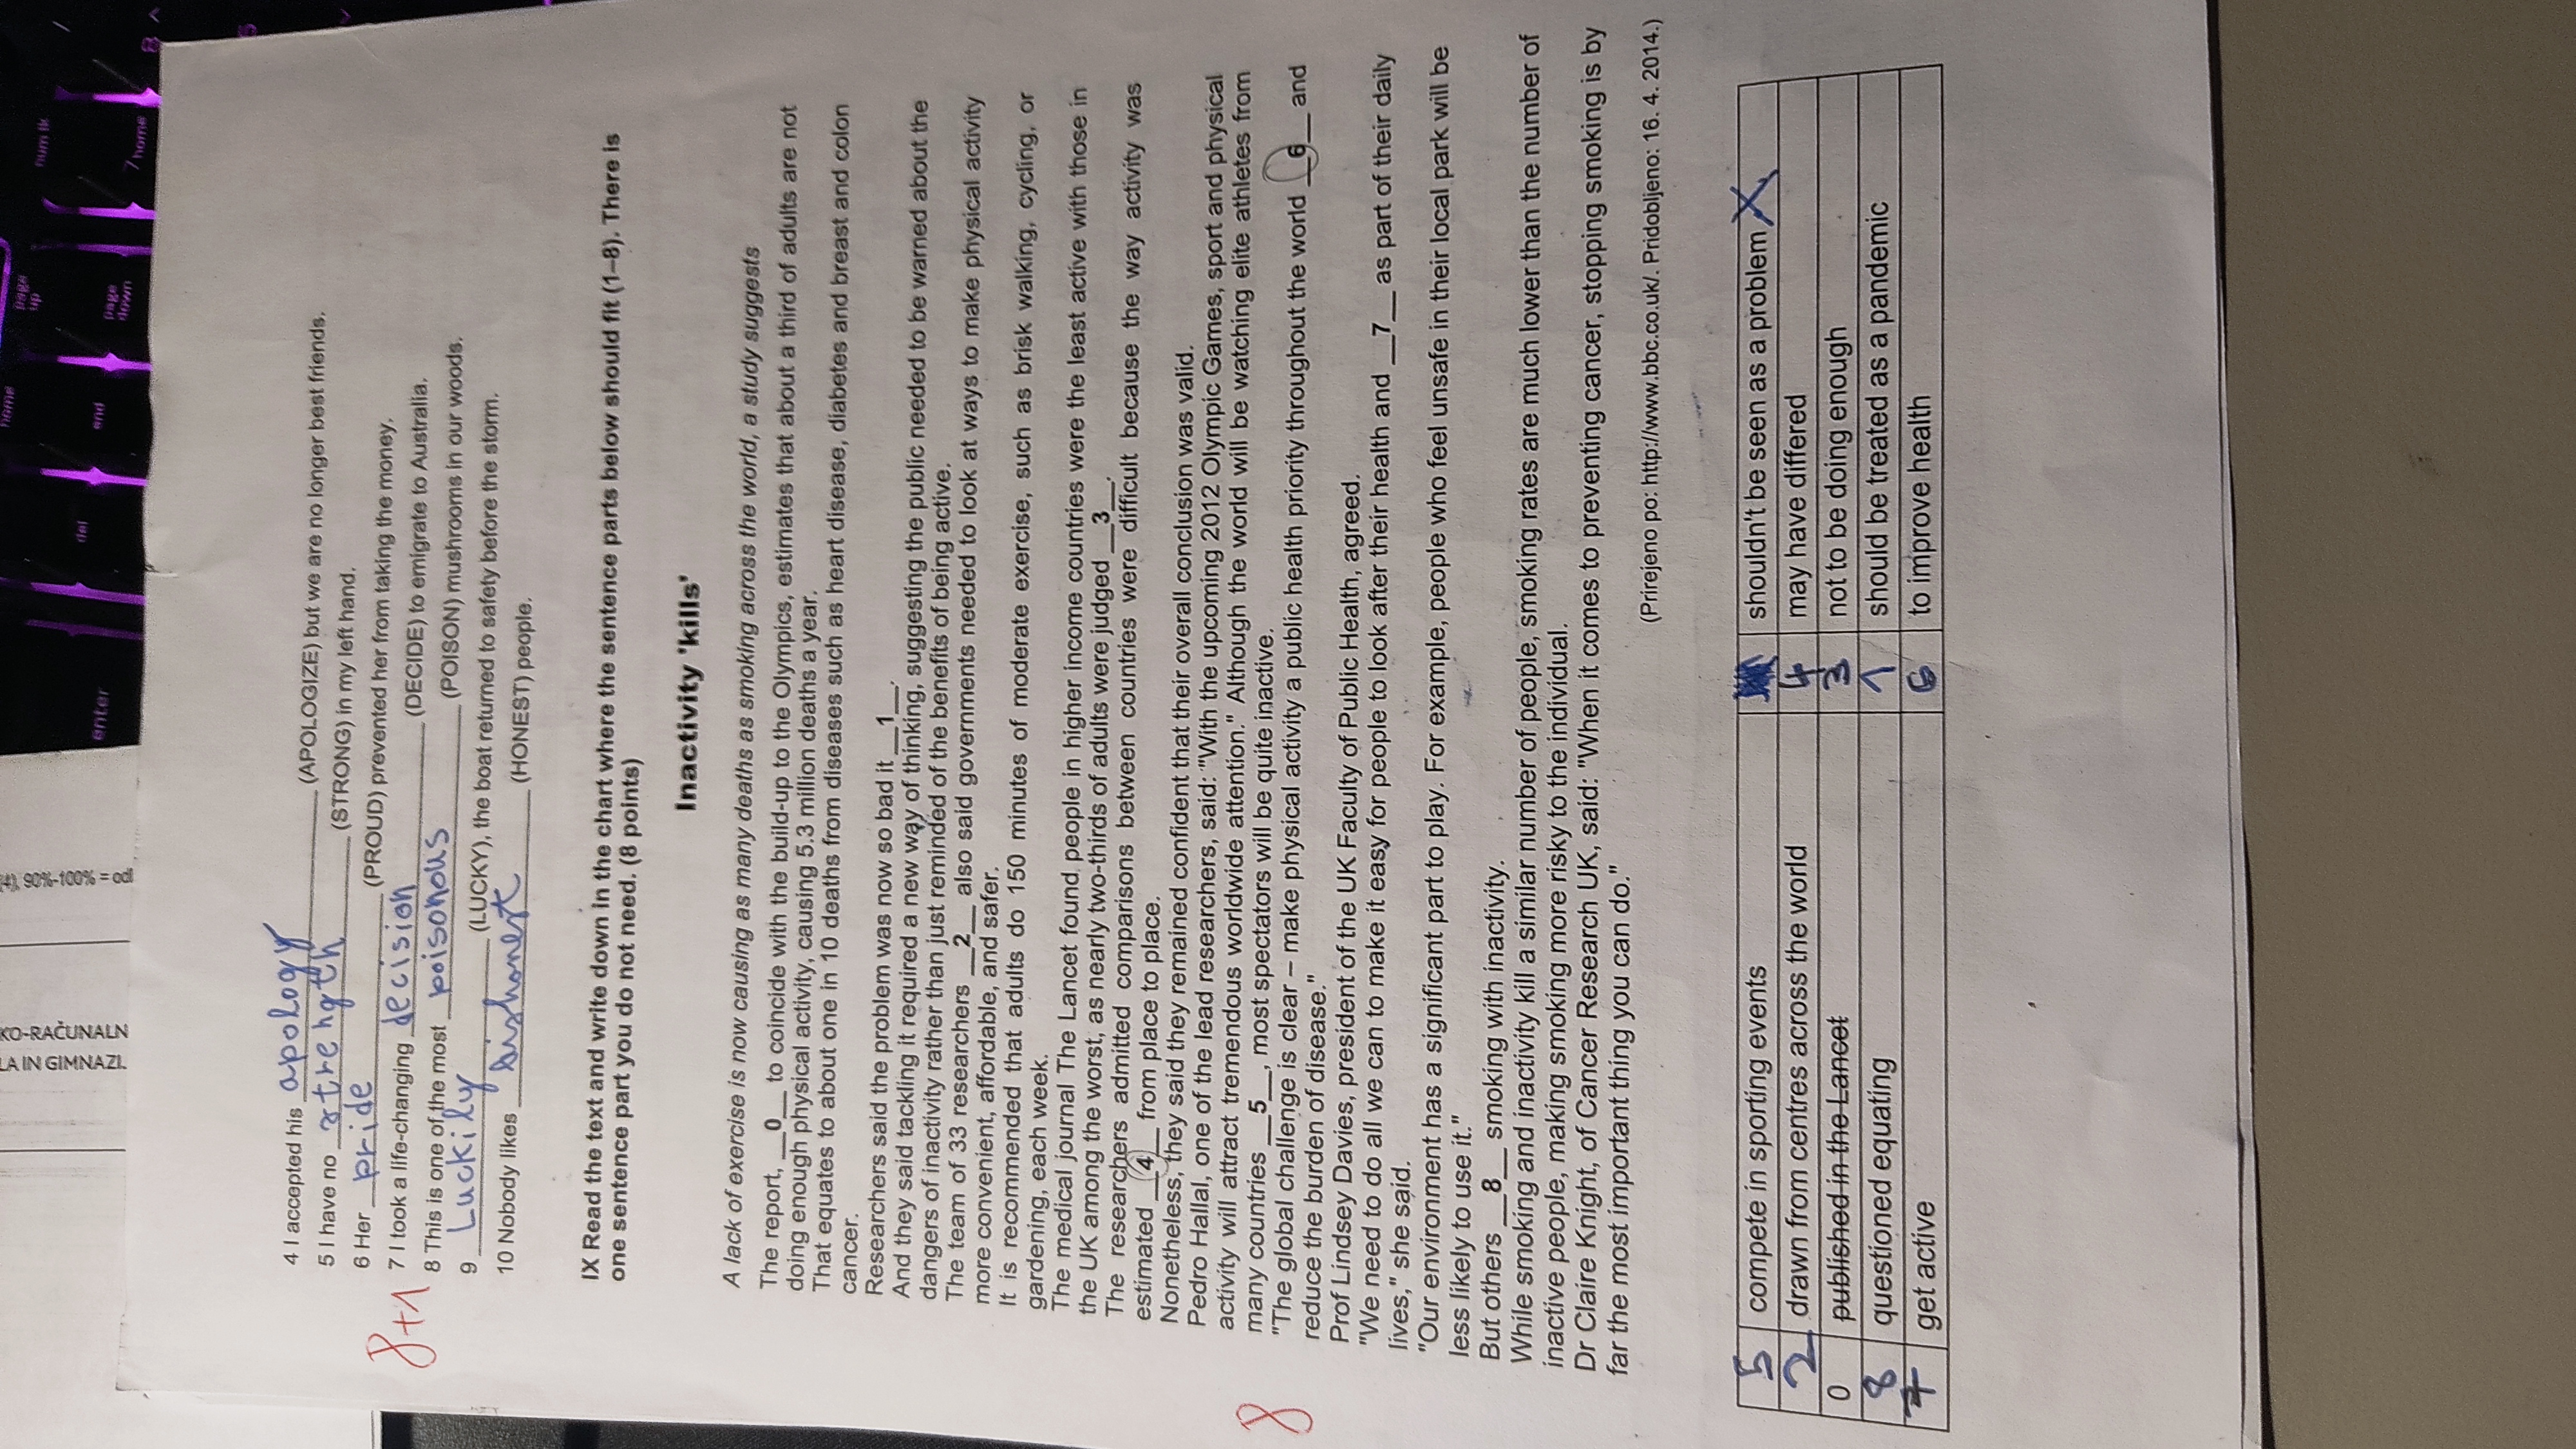 KO-RAČUNALN
LA IN GIMNAZI.
(4), 90%-100% = odl
home
page up
num lk
enter
del
end
page down
7 home
8
4 I accepted his apology (APOLOGIZE) but we are no longer best friends.
5 I have no strength (STRONG) in my left hand.
6 Her pride (PROUD) prevented her from taking the money.
8+1
7 I took a life-changing decision (DECIDE) to emigrate to Australia.
8 This is one of the most poisonous (POISON) mushrooms in our woods.
9 Luckily (LUCKY), the boat returned to safety before the storm.
10 Nobody likes dishonest (HONEST) people.
IX Read the text and write down in the chart where the sentence parts below should fit (1–8). There is
one sentence part you do not need. (8 points)
Inactivity 'kills'
A lack of exercise is now causing as many deaths as smoking across the world, a study suggests
The report, __0__ to coincide with the build-up to the Olympics, estimates that about a third of adults are not
doing enough physical activity, causing 5.3 million deaths a year.
That equates to about one in 10 deaths from diseases such as heart disease, diabetes and breast and colon
cancer.
Researchers said the problem was now so bad it __1__.
And they said tackling it required a new way of thinking, suggesting the public needed to be warned about the
dangers of inactivity rather than just reminded of the benefits of being active.
The team of 33 researchers __2__ also said governments needed to look at ways to make physical activity
more convenient, affordable, and safer.
It is recommended that adults do 150 minutes of moderate exercise, such as brisk walking, cycling, or
gardening, each week.
The medical journal The Lancet found people in higher income countries were the least active with those in
the UK among the worst, as nearly two-thirds of adults were judged __3__.
The researchers admitted comparisons between countries were difficult because the way activity was
estimated __4__ from place to place.
Nonetheless, they said they remained confident that their overall conclusion was valid.
Pedro Hallal, one of the lead researchers, said: "With the upcoming 2012 Olympic Games, sport and physical
activity will attract tremendous worldwide attention." Although the world will be watching elite athletes from
8
many countries __5__, most spectators will be quite inactive.
"The global challenge is clear – make physical activity a public health priority throughout the world __6__ and
reduce the burden of disease."
Prof Lindsey Davies, president of the UK Faculty of Public Health, agreed.
"We need to do all we can to make it easy for people to look after their health and __7__ as part of their daily
lives," she said.
"Our environment has a significant part to play. For example, people who feel unsafe in their local park will be
less likely to use it."
But others __8__ smoking with inactivity.
While smoking and inactivity kill a similar number of people, smoking rates are much lower than the number of
inactive people, making smoking more risky to the individual.
Dr Claire Knight, of Cancer Research UK, said: "When it comes to preventing cancer, stopping smoking is by
far the most important thing you can do."
(Prirejeno po: http://www.bbc.co.uk/. Pridobljeno: 16. 4. 2014.)
5 compete in sporting events shouldn't be seen as a problem X
2 drawn from centres across the world 4 may have differed
0 published in the Lancet 3 not to be doing enough
8 questioned equating 1 should be treated as a pandemic
7 get active 6 to improve health